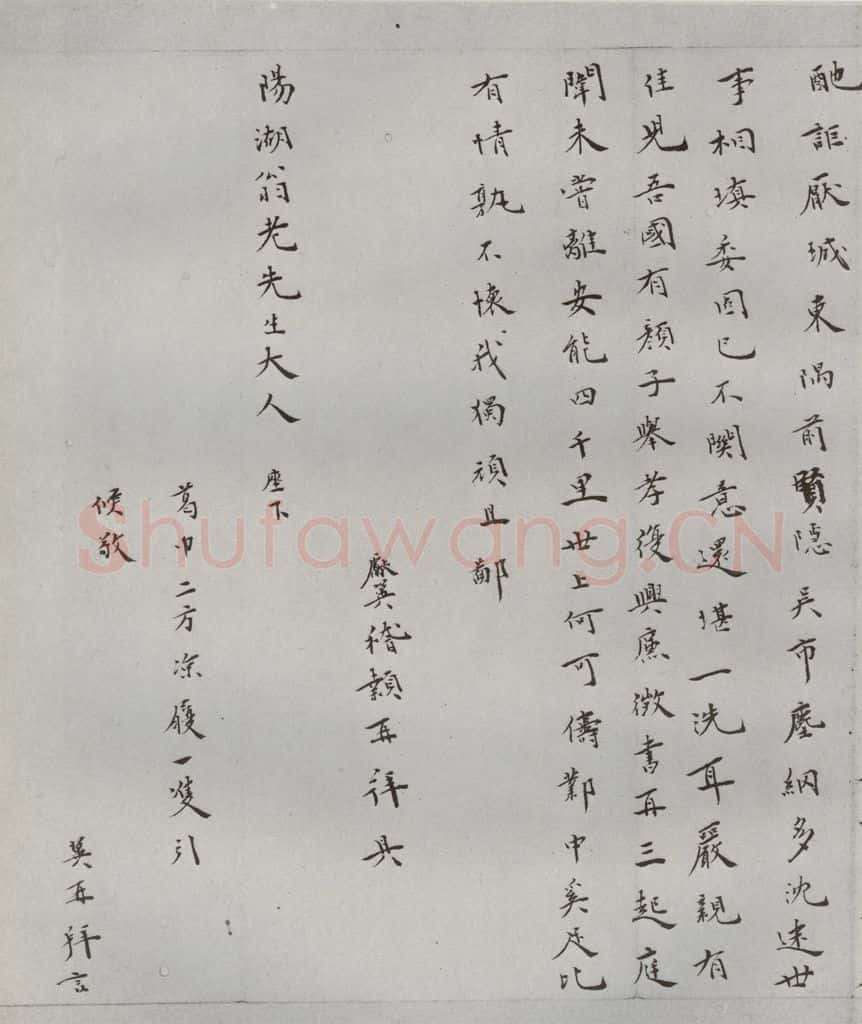 酏詎厭城東隅前賢隱吳市塵網多沈迷世
事相填委固已不關意還堪一洗耳嚴親有
佳兒吾國有顏子舉孝復興廉徵書再三起庭
闈未嘗離安能四千里世上何可儔鄴中奚足比
有情孰不懷我獨頑且鄙
稽顙再拜具
陽湖翁老先生大人 座下
葛巾二方涼履一雙引
候敬
英再拜言
Shufawang.CN